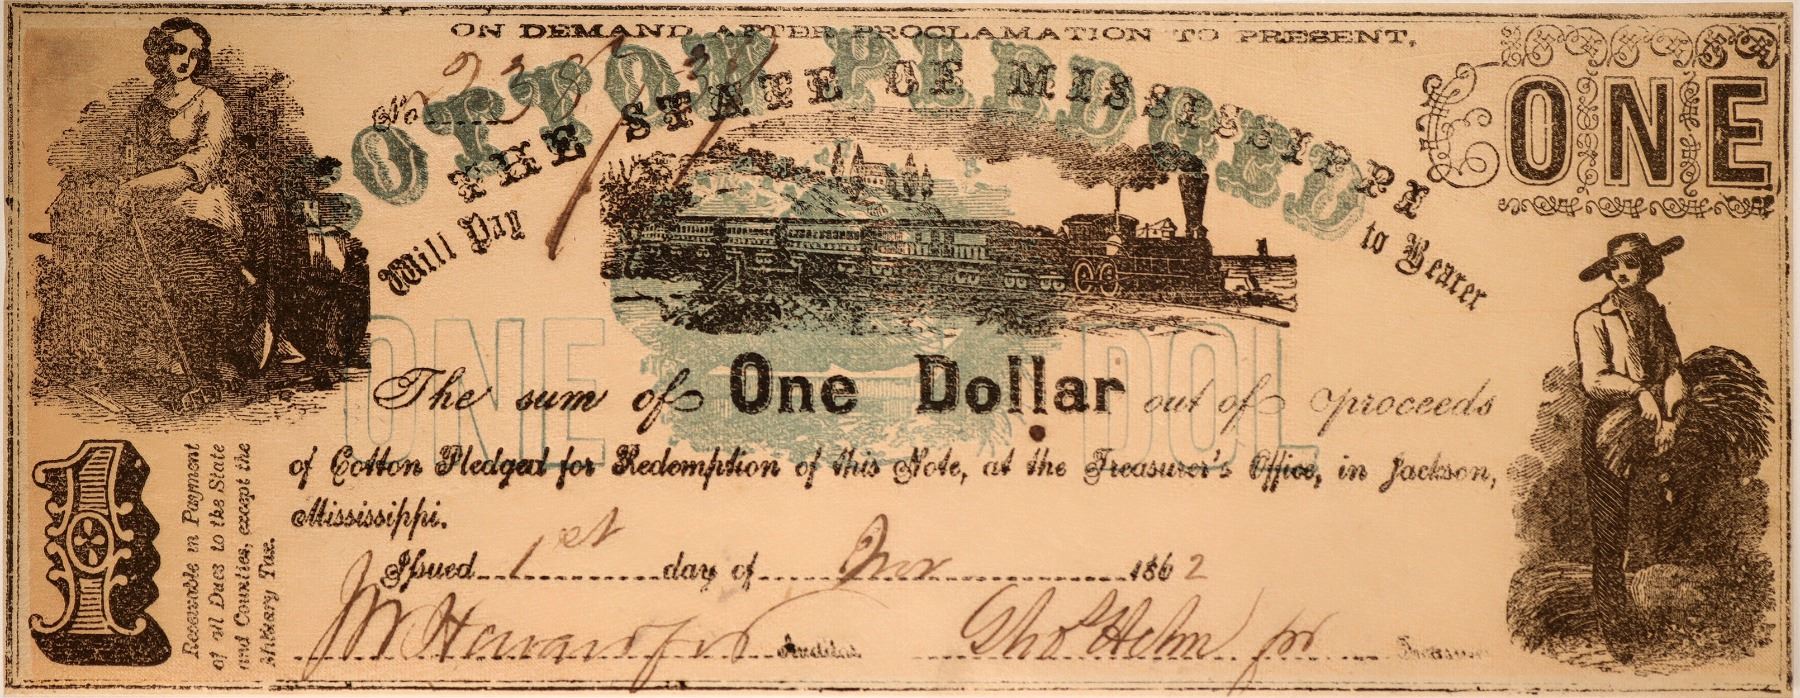 ON DEMAND AFTER PROCLAMATION TO PRESENT,
No
COTTON PLEDGED
THE STATE OF MISSISSIPPI
ONE
Will Pay
to Bearer
ONE DOL
The sum of One Dollar out of proceeds
of Cotton Pledged for Redemption of this Note, at the Treasurer's Office, in Jackson,
Mississippi.
Issued 1st day of Nov 1862
Auditor.
Thos Helm pr Treasurer
1
Receivable in Payment
of all Dues to the State
and Counties, except the
Military Tax.